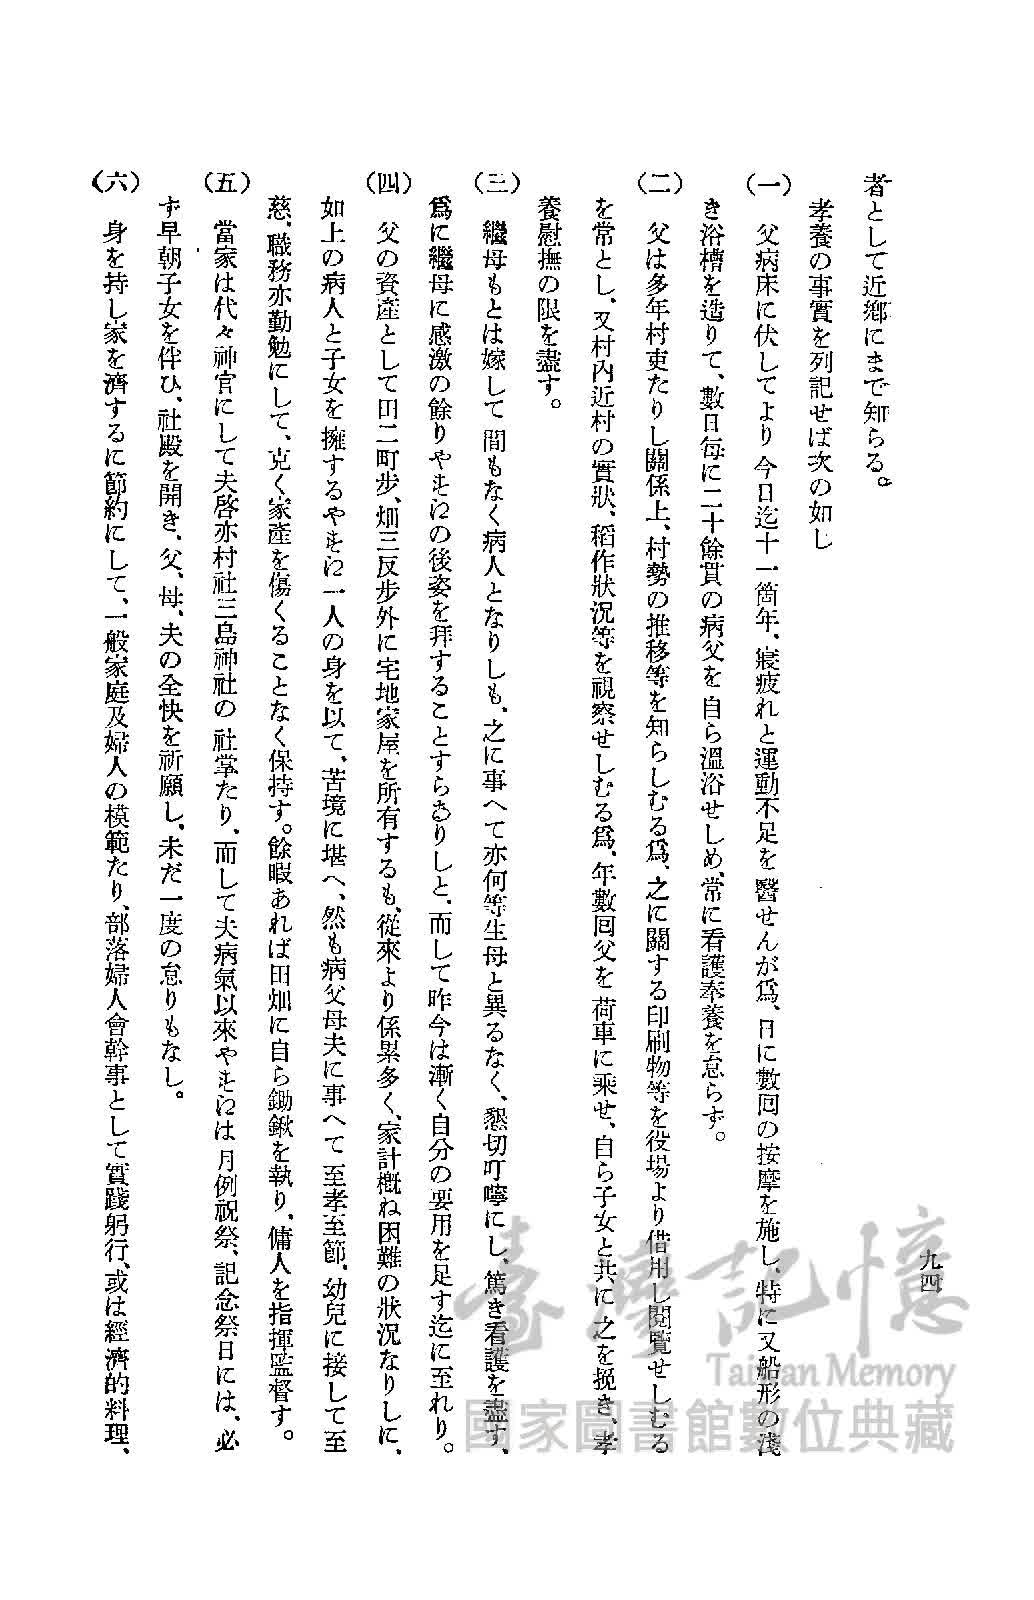 九四
者として近鄕にまで知らる。
孝養の事實を列記せば次の如し
(一) 父病床に伏してより今日迄十一箇年、寢疲れと運動不足を醫せんが爲、日に數囘の按摩を施し、特に又船形の淺
き浴槽を造りて、數日每に二十餘貫の病父を自ら溫浴せしめ、常に看護奉養を怠らず。
(二) 父は多年村吏たりし關係上、村勢の推移等を知らしむる爲、之に關する印刷物等を役場より借用し閱覽せしむる
を常とし、又村內近村の實狀、稻作狀況等を視察せしむる爲、年數囘父を荷車に乘せ、自ら子女と共に之を挽き、孝
養慰撫の限を盡す。
(三) 繼母もとは嫁して間もなく病人となりしも、之に事へて亦何等生母と異るなく、懇切叮嚀にし、篤き看護を盡す、
爲に繼母に感激の餘りやすゐの後姿を拜することすらありしと、而して昨今は漸く自分の要用を足す迄に至れり。
(四) 父の資產として田二町步、畑三反步外に宅地家屋を所有するも、從來より係累多く、家計槪ね困難の狀況なりしに、
如上の病人と子女を擁するやすゐ一人の身を以て、苦境に堪へ、然も病父母夫に事へて至孝至節、幼兒に接して至
慈、職務亦勤勉にして、克く家產を傷くることなく保持す。餘暇あれば田畑に自ら鋤鍬を執り、傭人を指揮監督す。
(五) 當家は代々神官にして夫啓亦村社三島神社の社掌たり、而して夫病氣以來やすゐは月例祝祭、記念祭日には、必
ず早朝子女を伴ひ、社殿を開き、父、母、夫の全快を祈願し、未だ一度の怠りもなし。
(六) 身を持し家を濟するに節約にして、一般家庭及婦人の模範たり、部落婦人會幹事として實踐躬行、或は經濟的料理、
臺灣記憶
Taiwan Memory
國家圖書館數位典藏